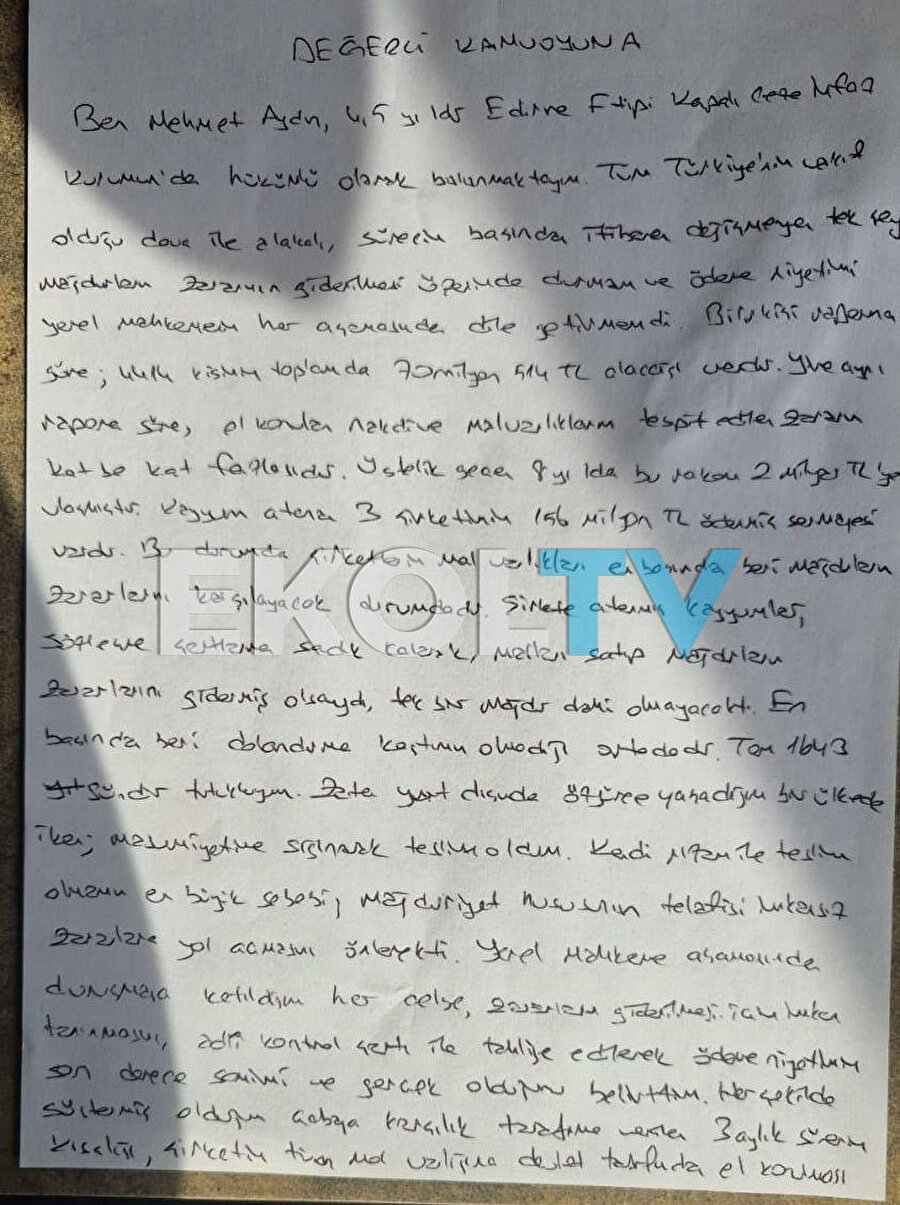 DEĞERLİ KAMUOYUNA
Ben Mehmet Aydın, 4,5 yıldır Edirne F tipi Kapalı Ceza İnfaz
Kurumun'da hükümlü olarak bulunmaktayım. Tüm Türkiye'nin vakıf
olduğu dava ile alakalı, sürecin başından itibaren değişmeyen tek şey
mağdurların zararının giderilmesi üzerinde durmam ve ödeme niyetimi
yerel mahkemenin her aşamasında dile getirmemdi. Bilirkişi raporuna
göre; 4414 kişinin toplamda 70 milyon 514 TL alacağı vardır. Yine aynı
rapora göre, el konulan nakdi ve malvarlıkların tespit edilen zararın
kat be kat fazlasıdır. Üstelik geçen 8 yılda bu rakam 2 Milyar TL'ye
ulaşmıştır. Kayyum atanan 3 şirketinin 156 milyon TL ödenmiş sermayesi
vardır. Bu durumda şirketlerin mal varlıkları en başında beri mağdurların
zararlarını karşılayacak durumdadır. Şirkete atanmış kayyumlar,
sözleşme şartlarına sadık kalarak, malları satıp mağdurların
zararlarını gidermiş olsaydı, tek bir mağdur dahi olmayacaktı. En
başında beri dolandırma kastımın olmadığı ortadadır. Tam 1643
gündür tutukluyum. Zaten yurt dışında özgürce yaşadığım bir ülkede
iken; masumiyetime sığınarak teslim oldum. Kendi rızam ile teslim
olmamın en büyük sebebi, mağduriyet hususunun telafisi imkansız
zararlara yol açmasını önlemekti. Yerel mahkeme aşamasında
duruşmaya katıldığım her celse, zararların giderilmesi için imkan
tanınmasını, adli kontrol şartı ile tahliye edilerek ödeme niyetimin
son derece samimi ve gerçek olduğunu belirttim. Her şekilde
göstermiş olduğum çabaya karşılık tarafıma verilen 3 aylık sürenin
kısalığı, şirketin tüm mal varlığına devlet tarafında el konulması